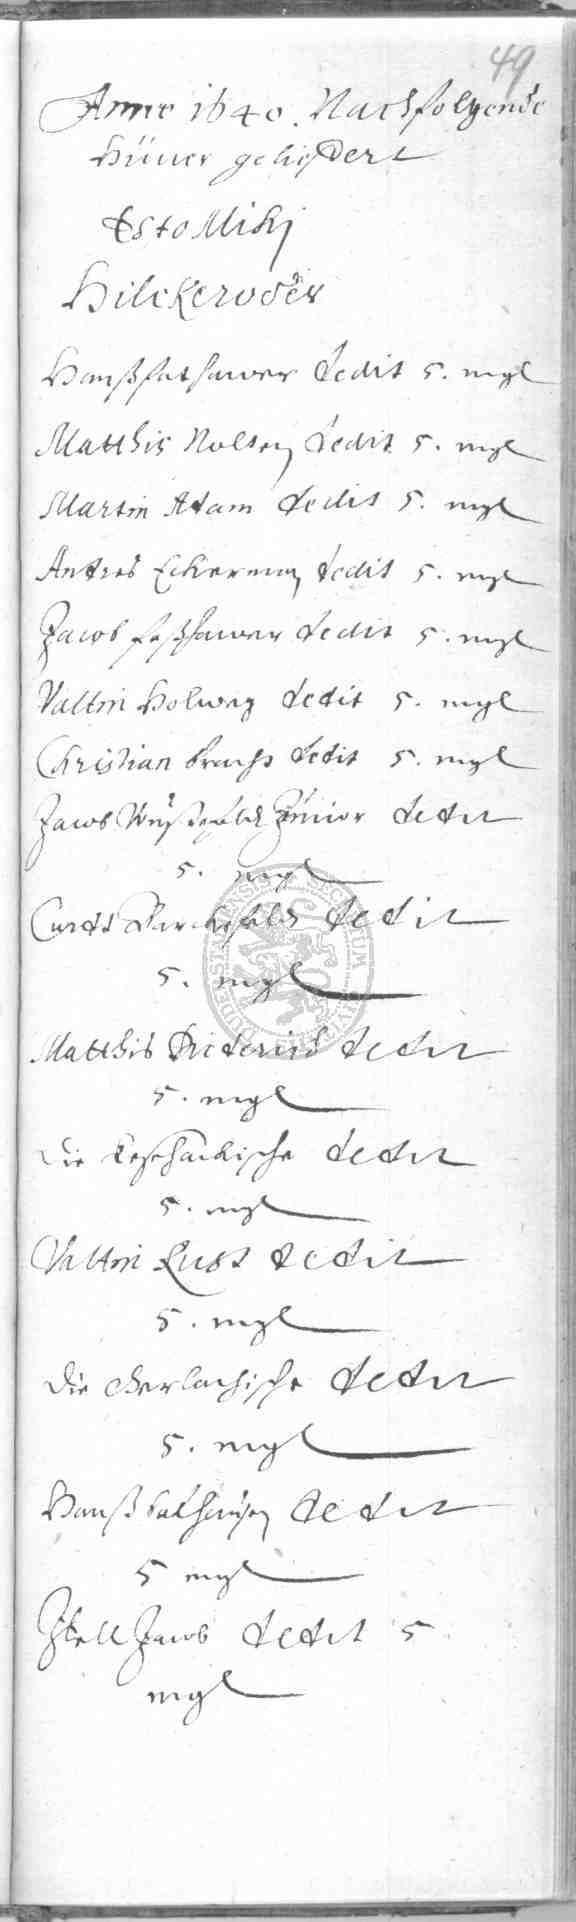 49
Anno 1640. Nachfolgende
Hüner geliefert
Esto Mihj
Hilckeroder
Hanß dedit 5. mgl
Matthis Nolten dedit 5. mgl
Martin Adam dedit 5. mgl
Andres Eckerman dedit 5. mgl
Jacob dedit 5. mgl
Valtin Holweg dedit 5. mgl
Christian dedit 5. mgl
Jacob Junior dedit
5. mgl
Curdt dedit
5. mgl
Matthis Diderich dedit
5. mgl
Die dedit
5. mgl
Valtin Lust dedit
5. mgl
Die Gerlachische dedit
5. mgl
Hanß dedit
5 mgl
Jacob dedit 5
mgl